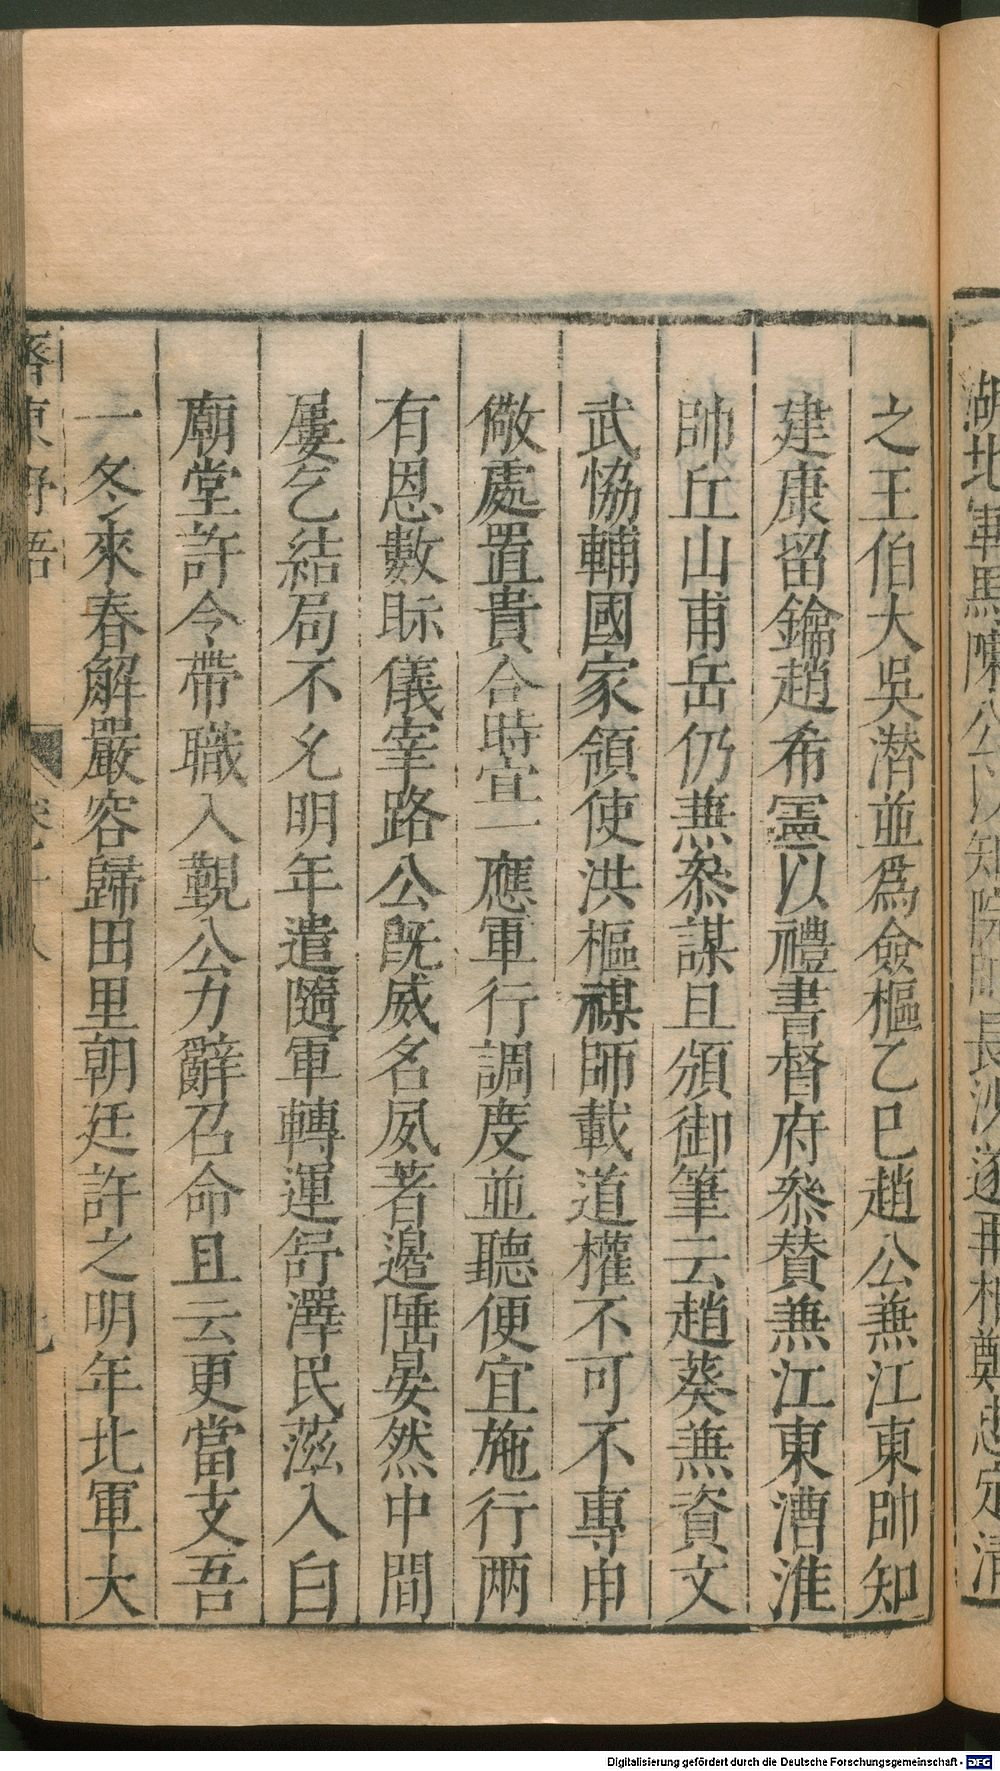 湖北軍馬
之王伯大吳潛並爲僉樞乙巳趙公兼江東帥知
建康留鑰趙希𡫏以禮書督府叅贊兼江東漕淮
帥丘山甫岳仍兼叅謀且頒御筆云趙葵兼資文
武恊輔國家領使洪樞禖師載道權不可不專申
儆處置貴合時宜一應軍行調度並聽便宜施行兩
有恩數眎儀宰路公旣威名夙著邊陲晏然中間
屢乞結局不允明年遣隨軍轉運舒澤民滋入白
廟堂許令帶職入覲公力辭召命且云更當支吾
一冬來春解嚴容歸田里朝廷許之明年北軍大
齊東野語
Digitalisierung gefördert durch die Deutsche Forschungsgemeinschaft - DFG